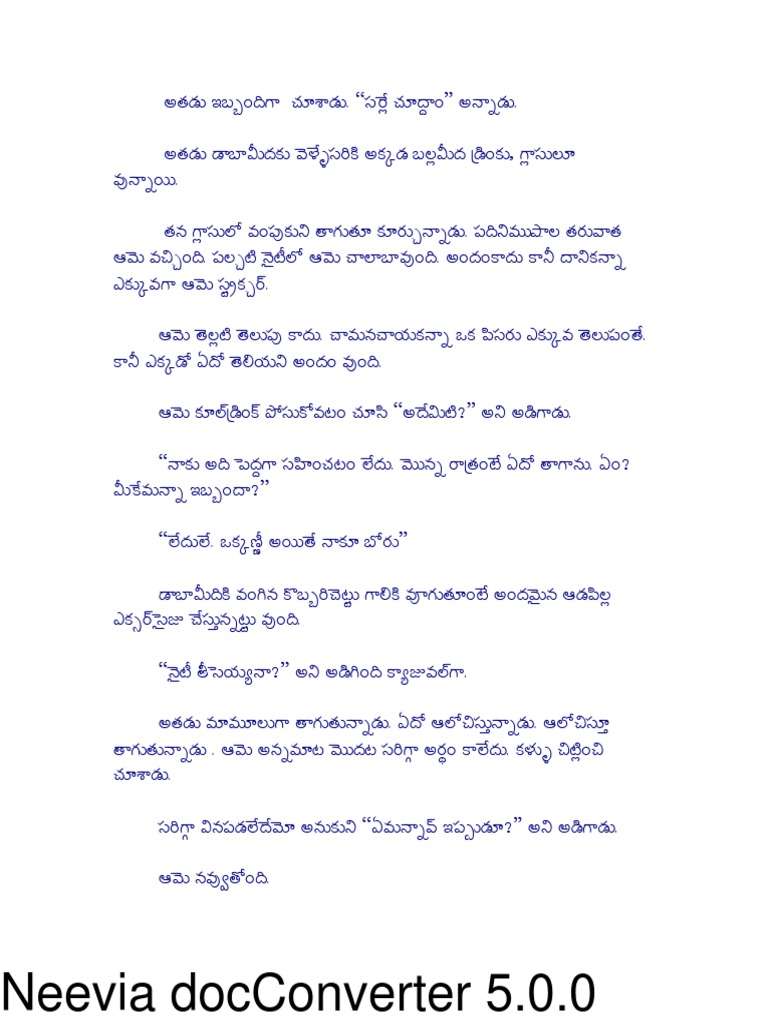 అతడు ఇబ్బందిగా చూశాడు. “సర్లే చూద్దాం” అన్నాడు.
అతడు డాబామీదకు వెళ్ళేసరికి అక్కడ బల్లమీద డ్రింకు, గ్లాసులూ
వున్నాయి.
తన గ్లాసులో వంపుకుని తాగుతూ కూర్చున్నాడు. పదినిముషాల తరువాత
ఆమె వచ్చింది. పల్చటి నైటీలో ఆమె చాలాబావుంది. అందంకాదు కానీ దానికన్నా
ఎక్కువగా ఆమె స్ట్రక్చర్.
ఆమె తెల్లటి తెలుపు కాదు. చామనచాయకన్నా ఒక పిసరు ఎక్కువ తెలుపంతే.
కానీ ఎక్కడో ఏదో తెలియని అందం వుంది.
ఆమె కూల్‌డ్రింక్ పోసుకోవటం చూసి “అదేమిటి?” అని అడిగాడు.
“నాకు అది పెద్దగా సహించటం లేదు. మొన్న రాత్రంటే ఏదో తాగాను. ఏం?
మీకేమన్నా ఇబ్బందా?”
“లేదులే. ఒక్కణ్ణీ అయితే నాకూ బోరు”
డాబామీదికి వంగిన కొబ్బరిచెట్టు గాలికి వూగుతూంటే అందమైన ఆడపిల్ల
ఎక్సర్‌సైజు చేస్తున్నట్టు వుంది.
“నైటీ తీసెయ్యనా?” అని అడిగింది క్యాజువల్‌గా.
అతడు మామూలుగా తాగుతున్నాడు. ఏదో ఆలోచిస్తున్నాడు. ఆలోచిస్తూ
తాగుతున్నాడు . ఆమె అన్నమాట మొదట సరిగ్గా అర్థం కాలేదు. కళ్ళు చిట్లించి
చూశాడు.
సరిగ్గా వినపడలేదేమో అనుకుని “ఏమన్నావ్ ఇప్పుడూ?” అని అడిగాడు.
ఆమె నవ్వుతోంది.
Neevia docConverter 5.0.0